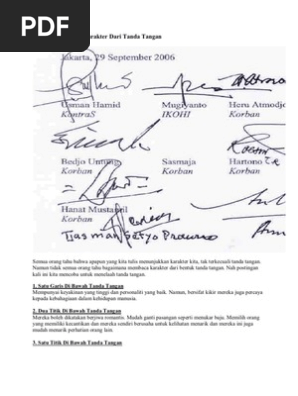 PDF
arakter Dari Tanda Tangan
Jakarta, 29 September 2006
Usman Hamid
KontraS
Mugiyanto
IKOHI
Heru Atmodjo
Korban
Bedjo Untung
Korban
Sasmaja
Korban
Hartono
Korban
Hanat Mustapril
Korban
Tjasman Setyo Prawiro
Semua orang tahu bahwa apapun yang kita tulis menunjukkan karakter kita, tak terkecuali tanda tangan.
Namun tidak semua orang tahu bagaimana membaca karakter dari bentuk tanda tangan. Nah postingan
kali ini kita mencoba untuk menelaah tanda tangan.
1. Satu Garis Di Bawah Tanda Tangan
Mempunyai keyakinan yang tinggi dan personaliti yang baik. Namun, bersifat kikir mereka juga percaya
kepada kebahagiaan dalam kehidupan manusia.
2. Dua Titik Di Bawah Tanda Tangan
Mereka boleh dikatakan berjiwa romantis. Mudah ganti pasangan seperti menukar baju. Memilih orang
yang memiliki kecantikan dan mereka sendiri berusaha untuk kelihatan menarik dan mereka ini juga
mudah menarik perhatian orang lain.
3. Satu Titik Di Bawah Tanda Tangan